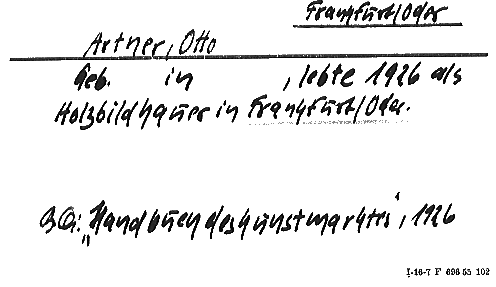 Frankfurt/Oder
Artner, Otto
Geb. in , lebte 1926 als
Holzbildhauer in Frankfurt/Oder.
BQ: „Handbuch des Kunstmarktes", 1926
I-16-7 F 696 55 102